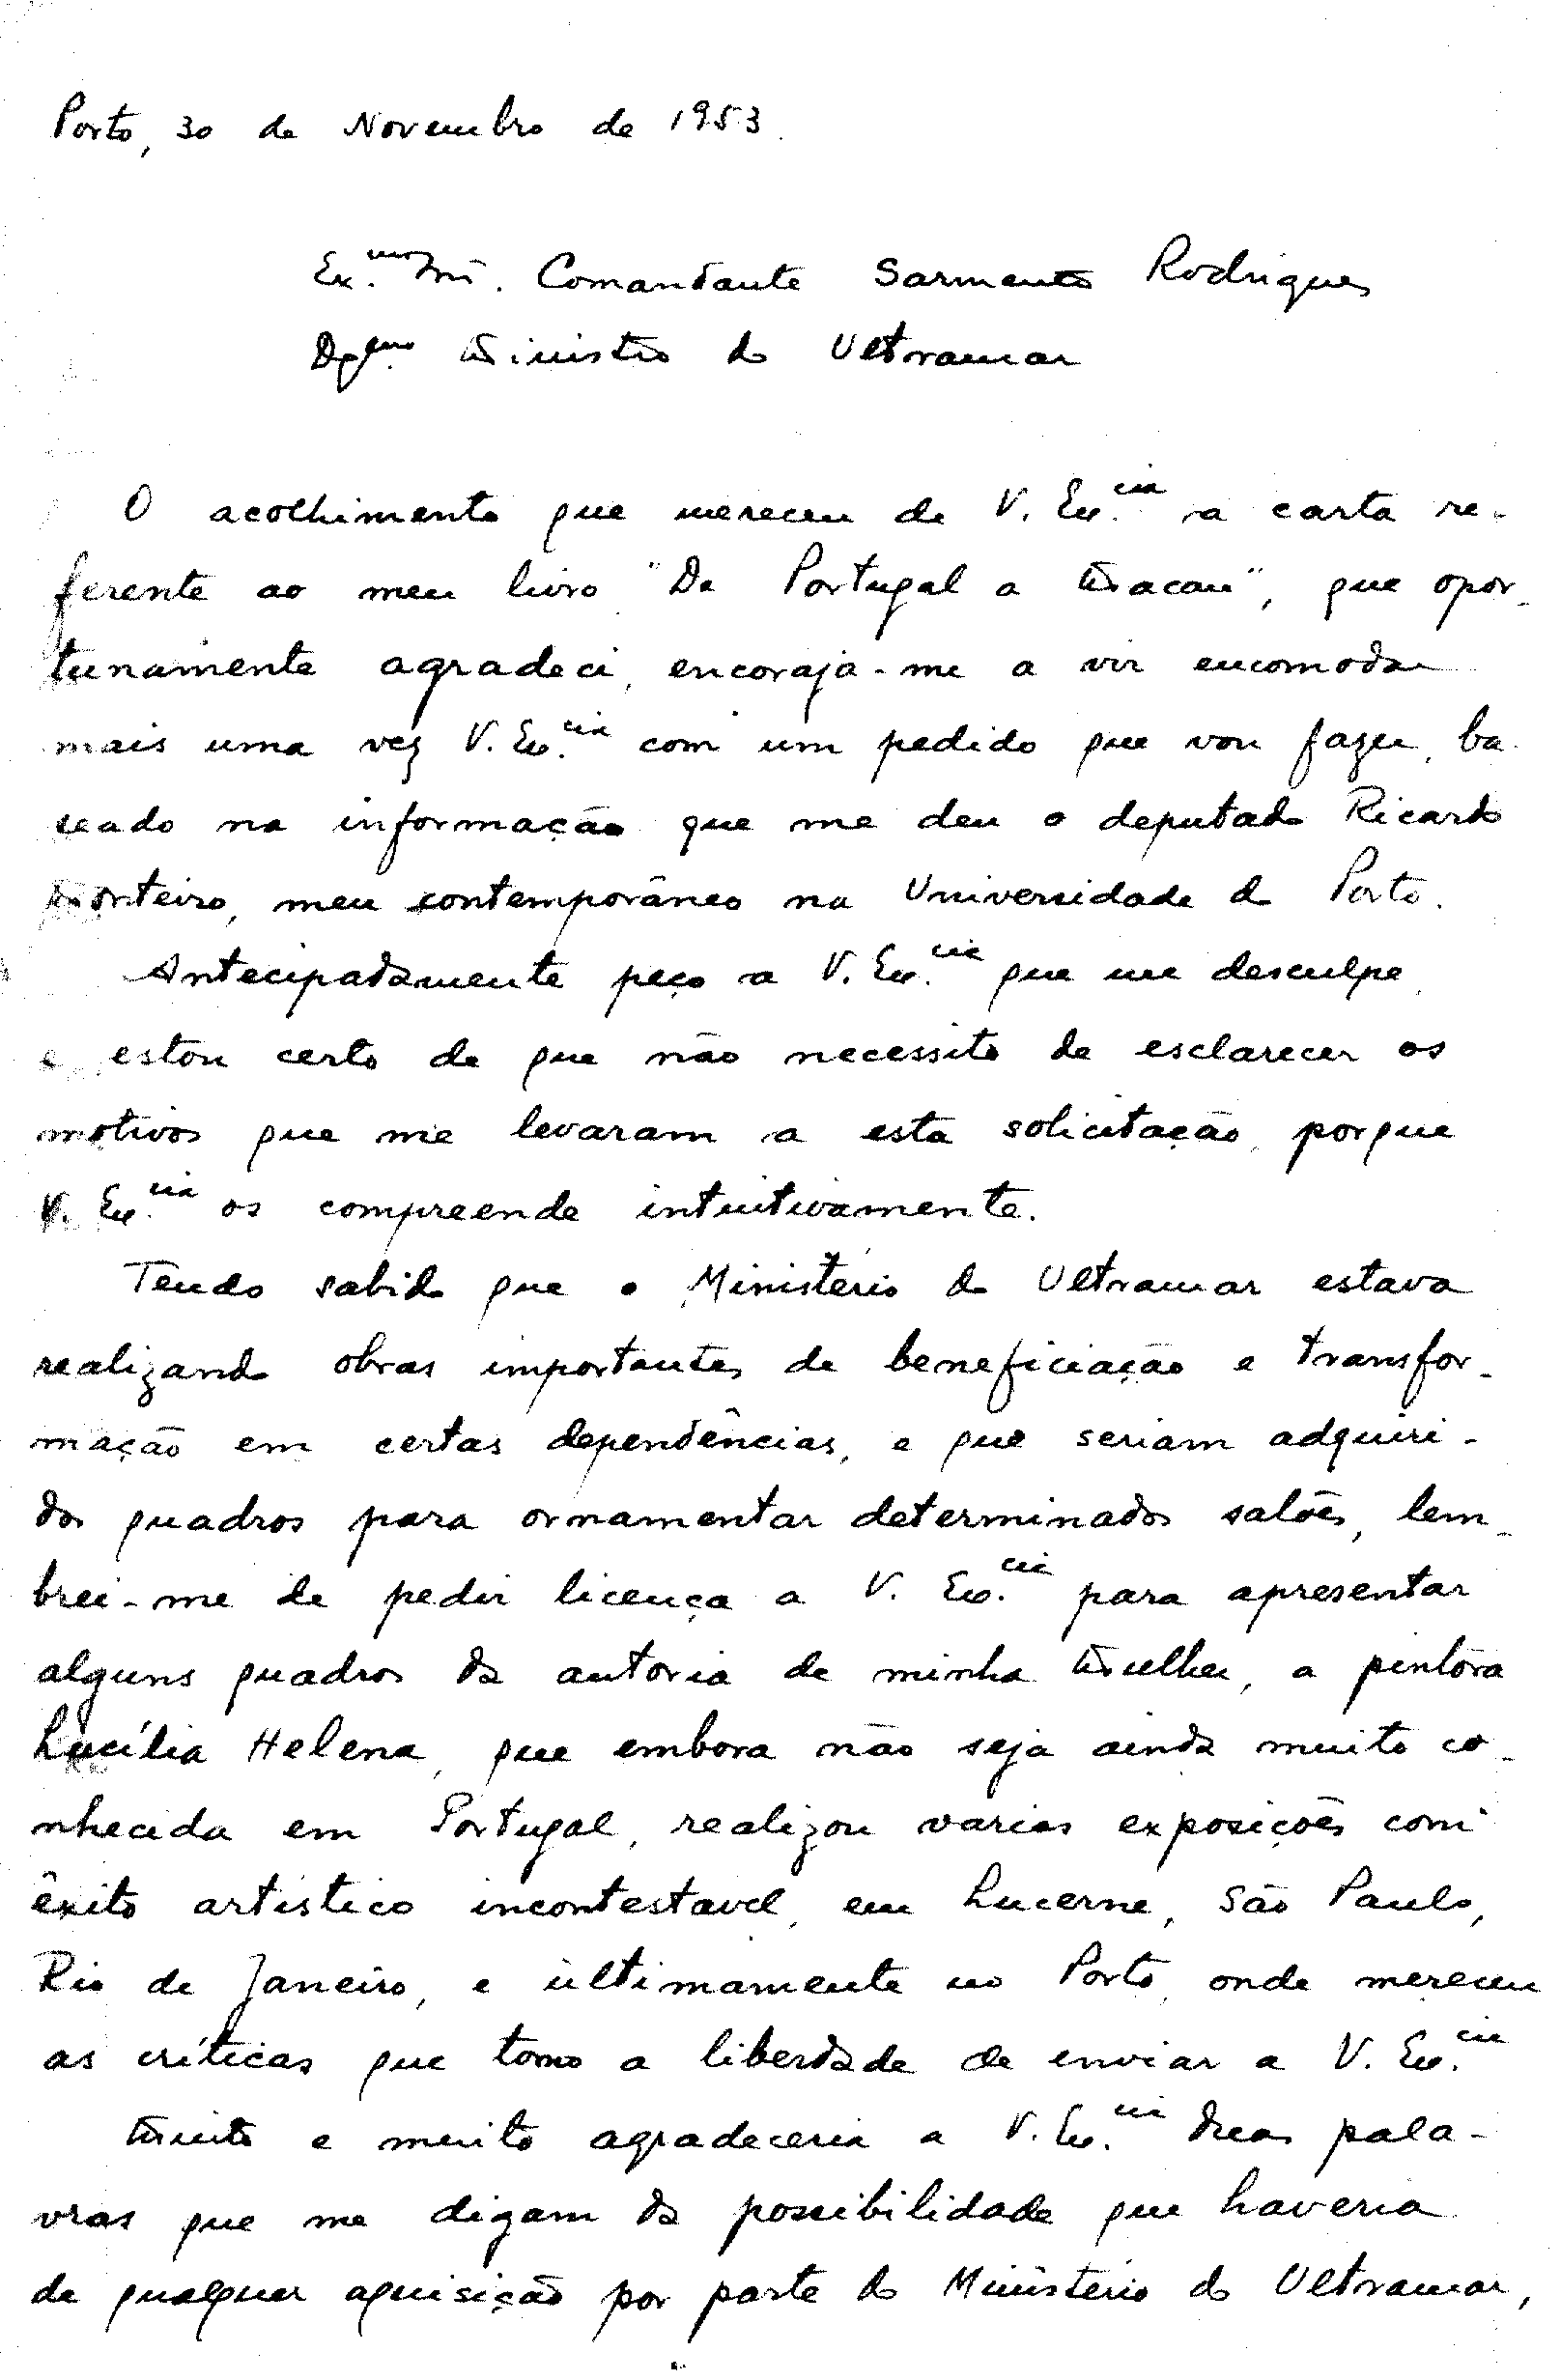 Porto, 30 de Novembro de 1953.
Ex.mo Snr. Comandante Sarmento Rodrigues
Dgmo. Ministro do Ultramar
O acolhimento que mereceu de V. Ex.cia a carta re-
ferente ao meu livro "De Portugal a Macau", que opor-
tunamente agradeci, encoraja-me a vir encomodar
mais uma vez V. Ex.cia com um pedido que vou fazer, ba-
seado na informação que me deu o deputado Ricardo
Monteiro, meu contemporâneo na Universidade do Porto.
Antecipadamente peço a V. Ex.cia que me desculpe,
e estou certo de que não necessito de esclarecer os
motivos que me levaram a esta solicitação, porque
V. Ex.cia os compreende intuitivamente.
Tendo sabido que o Ministério do Ultramar estava
realizando obras importantes de beneficiação e transfor-
mação em certas dependências, e que seriam adquiri-
dos quadros para ornamentar determinados salões, lem-
brei-me de pedir licença a V. Ex.cia para apresentar
alguns quadros da autoria de minha Mulher, a pintora
Lucília Helena, que embora não seja ainda muito co-
nhecida em Portugal, realizou varias exposições com
êxito artístico incontestavel, em Lucerne, São Paulo,
Rio de Janeiro, e ùltimamente no Porto, onde mereceu
as críticas que tomo a liberdade de enviar a V. Ex.cia
Muito e muito agradeceria a V. Ex.cia duas pala-
vras que me digam da possibilidade que haveria
de qualquer aquisição por parte do Ministério do Ultramar,